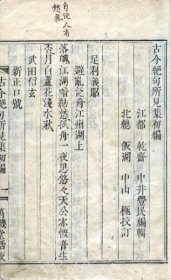 古今絕句所見集初編
江都 乾齋 中井豐民編輯
北總 飯湖 中山 極校訂
足利義昭
避亂泛舟江州湖上
落魄江湖暗結愁孤舟一夜思悠々天公亦慰吾生
否月白蘆花淺水秋
武田信玄
新正口號
古今絕句所見集初編
一